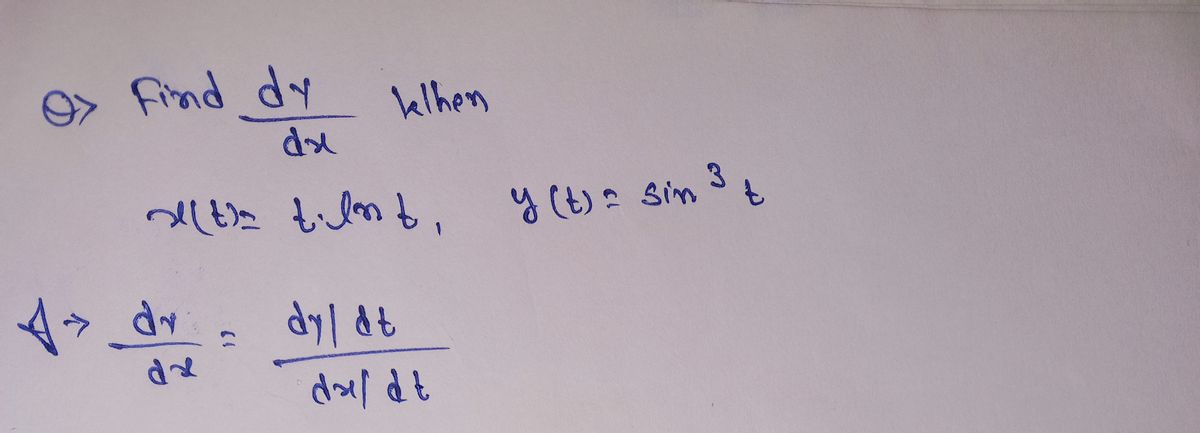 Q> Find dy/dx When
x(t)= t.ln t, y(t)= sin³ t
A→ dy/dx = (dy/dt)/(dx/dt)